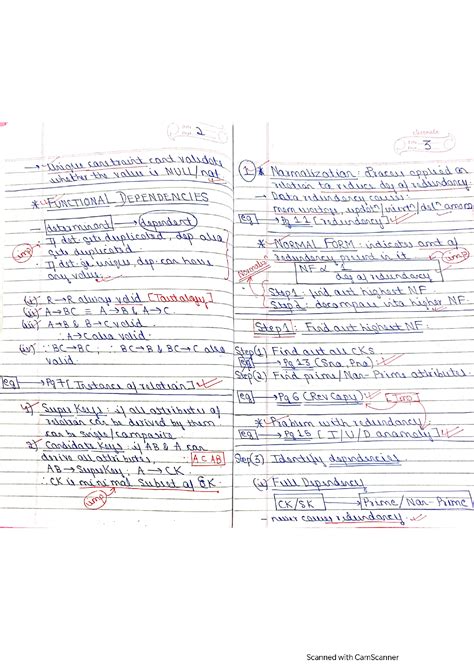 2
→ Unique constraint cant validate
whether the value is NULL/not.
* FUNCTIONAL DEPENDENCIES
- determinant → dependent
If det. gets duplicated, dep also
gets duplicated.
If det. is unique, dep. can have
any value.
imp
(i) R→R always valid [Tautology]
(ii) A→BC ≡ A→B & A→C.
(iii) A→B & B→C valid
∴ A→C also valid.
(iv) ∵ BC→BC ∴ BC→B & BC→C also
valid.
eg → Pg 7 [Instance of relation]
1) Super Keys: if all attributes of
relation can be derived by them
can be single/composite.
2) Candidate Keys: if AB & A can
derive all attributes. ∴ A ⊂ AB
AB→SuperKey ; A→CK.
∴ CK is minimal subset of SK
imp
3
1 * Normalization: Process applied on
relation to reduce deg of redundancy
- Data redundancy causes:
mem wastage, update/insert/deln anom
eg → Pg 11 [redundancy]
* NORMAL FORM: indicates amt of
redundancy present in it.
NF ∝ 1
deg of redundancy
imp
Normalization
Step1: find out highest NF
Step2: decompose into higher NF
Step1: Find out highest NF.
Step(1) Find out all CKs.
eg → Pg 13 (Sno, Pno)
Step(2) Find prime/Non-Prime attributes
eg → Pg 6 (Rev Copy)
Imp
* Problem with redundancy
eg → Pg 15 [I/U/D anomaly]
Step(3) Identify dependencies
(i) Full Dependency
CK/SK → Prime/Non-Prime
- never causes redundancy.
Scanned with CamScanner